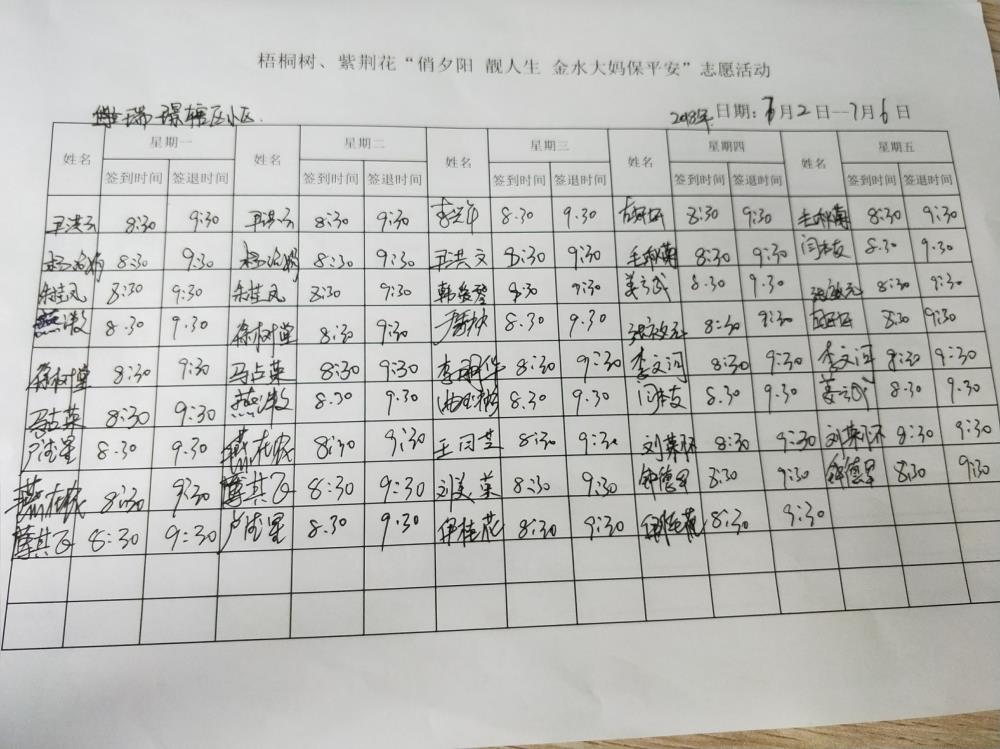 梧桐树、紫荆花“俏夕阳 靓人生 金水大妈保平安”志愿活动
辖区小区 2018年 日期：7月2日--7月6日
姓名 星期一 姓名 星期二 姓名 星期三 姓名 星期四 姓名 星期五
签到时间 签退时间 签到时间 签退时间 签到时间 签退时间 签到时间 签退时间 签到时间 签退时间
8:30 9:30 8:30 9:30 8.30 9.30 8:30 9:30 8:30 9:30
8:30 9:30 8:30 9:30 王洪文 8:30 9:30 8:30 9:30 闫枝 8.30 9.30
朱桂凤 8:30 9:30 朱桂凤 8:30 9:30 韩爱琴 8:30 9:30 姜文武 8.30 9.30 8:30 9:30
8.30 9.30 徐树堂 8:30 9:30 8.30 9.30 8:30 9:30 8:30 9:30
徐树堂 8:30 9:30 马占英 8:30 9:30 李明华 8:30 9:30 李文河 8:30 9:30 李文河 8:30 9:30
马占英 8:30 9:30 8.30 9.30 8.30 9.30 闫枝 8.30 9.30 姜文武 8.30 9.30
卢德星 8.30 9.30 8:30 9:30 王同兰 8:30 9:30 刘荣环 8:30 9:30 刘荣环 8:30 9:30
8:30 9:30 8:30 9:30 刘美英 8:30 9:30 钟德军 8:30 9:30 钟德军 8:30 9:30
8:30 9:30 卢德星 8.30 9.30 伊桂花 8:30 9:30 伊桂花 8:30 9:30